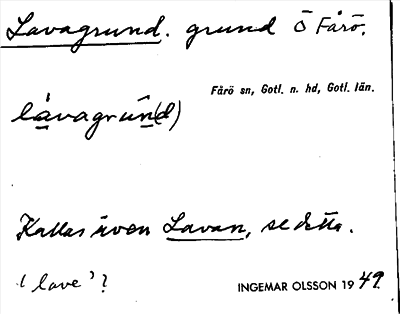 Lavagrund. grund Ö Fårö.
Fårö sn, Gotl. n. hd, Gotl. län.
låvagrun(d)
Kallas även Lavan, se detta.
'lave'?
INGEMAR OLSSON 1949.